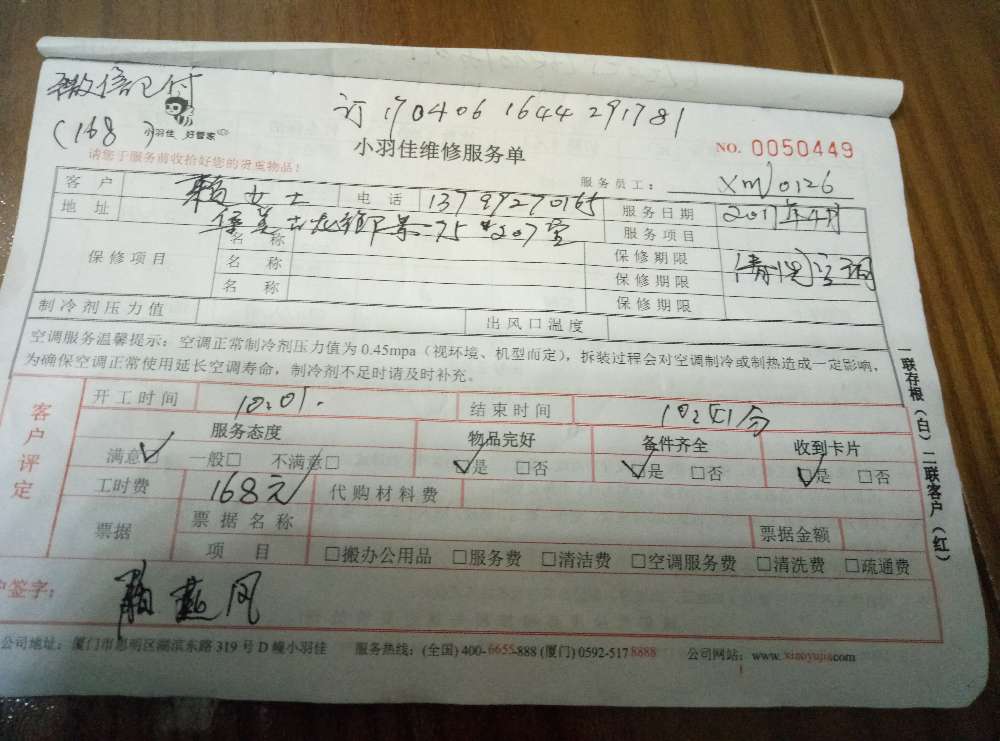 微信已付
(168)
订170406 1644 291781
小羽佳 好管家
小羽佳维修服务单
NO. 0050449
请您于服务前收拾好您的贵重物品!
服务员工: xm0126
客户 赖女士 电话 服务日期 2017年4月
地址 服务项目 清洗空调
保修项目 名称 保修期限
名称 保修期限
名称 保修期限
制冷剂压力值 出风口温度
空调服务温馨提示:空调正常制冷剂压力值为0.45mpa(视环境、机型而定),拆装过程会对空调制冷或制热造成一定影响,
为确保空调正常使用延长空调寿命,制冷剂不足时请及时补充。
客户评定
开工时间 10:01. 结束时间
服务态度 物品完好 备件齐全 收到卡片
满意✓ 一般□ 不满意□ ✓是 □否 ✓是 □否 ✓是 □否
工时费 168元 代购材料费
票据 票据名称 票据金额
项目 □搬办公用品 □服务费 □清洁费 □空调服务费 □清洗费 □疏通费
户签字:
公司地址:厦门市思明区湖滨东路319号D幢小羽佳 服务热线:(全国)400-6655-888 (厦门)0592-5178888 公司网站:www.xiaoyujia.com
一联存根(白)二联客户(红)